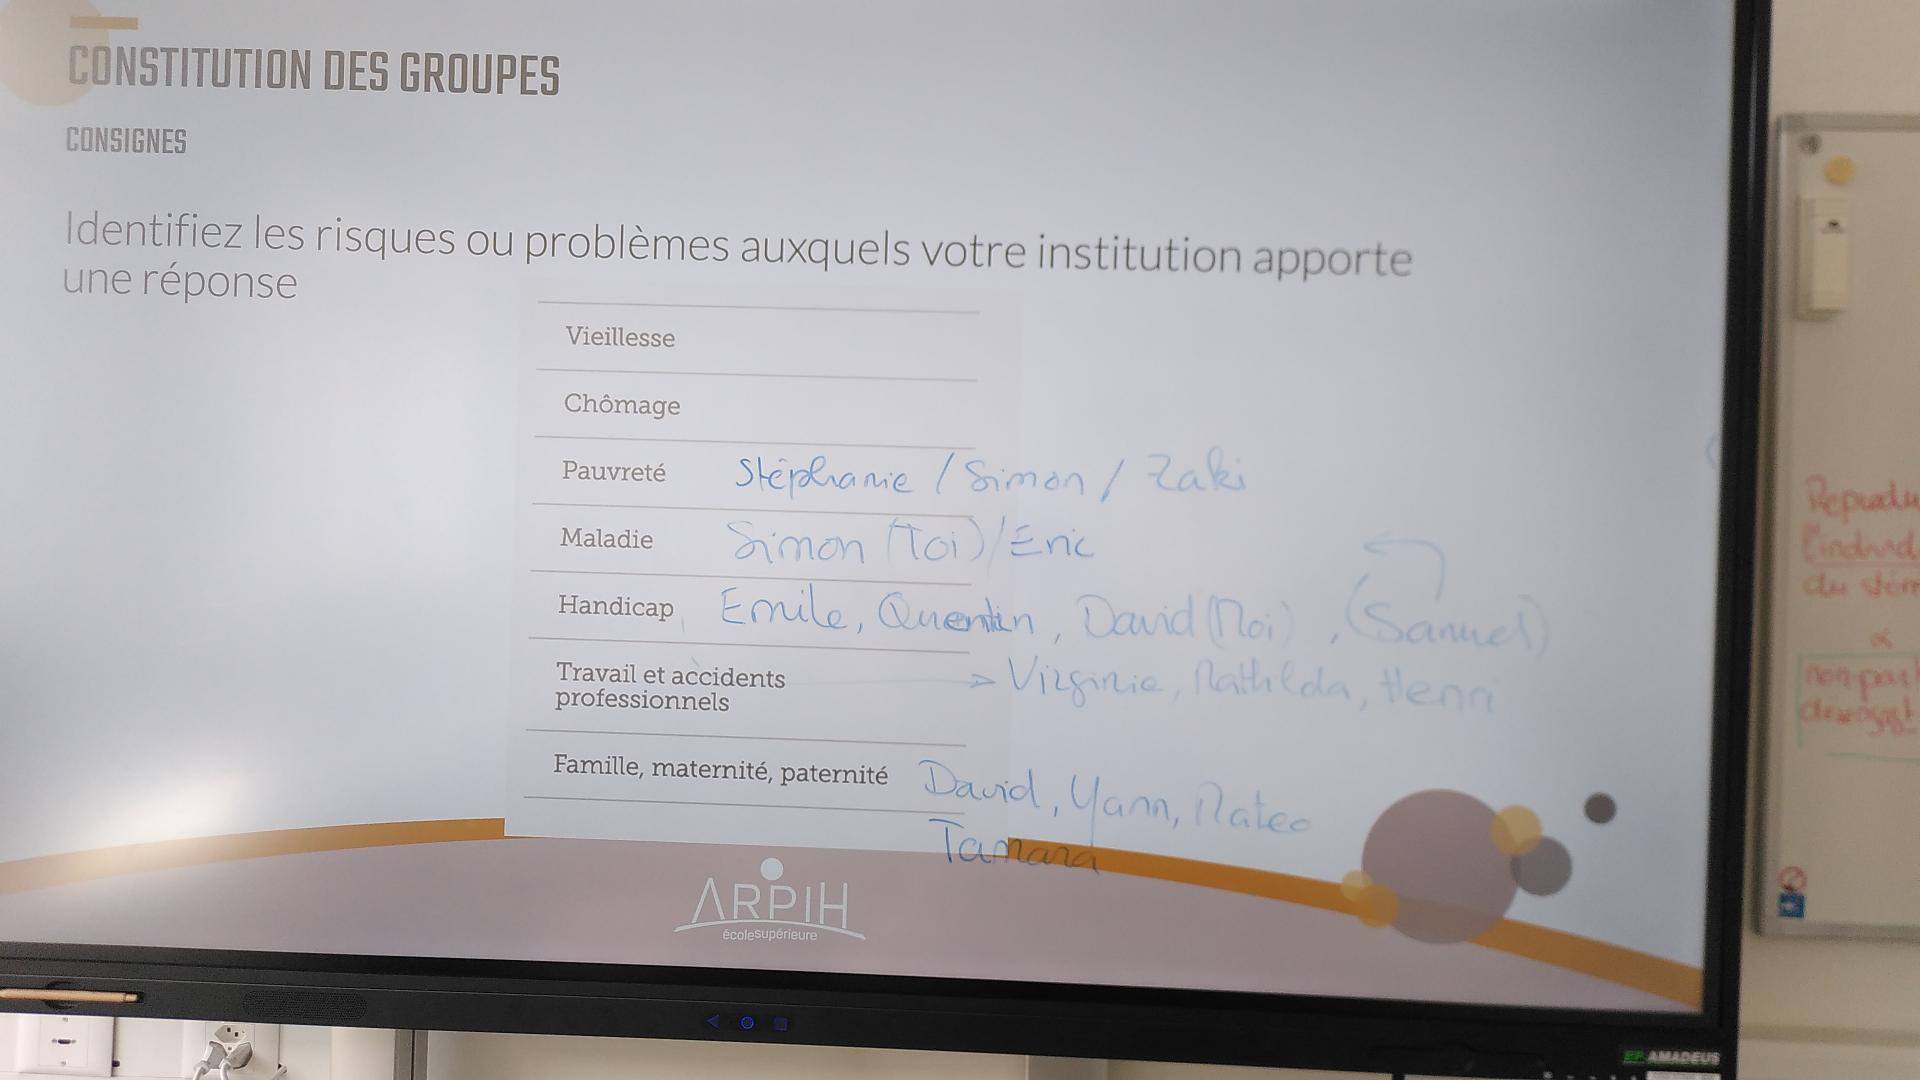 CONSTITUTION DES GROUPES
CONSIGNES
Identifiez les risques ou problèmes auxquels votre institution apporte
une réponse
Vieillesse
Chômage
Pauvreté Stéphanie / Simon / Zaki
Maladie Simon (Toi) / Eric
Handicap Emile, Quentin, David (Moi), (Samuel)
Travail et accidents
professionnels → Virginie, Mathilda, Henri
Famille, maternité, paternité David, Yann, Mateo
Tamara
ARPIH
écolesupérieure
AMADEUS
du
non-part